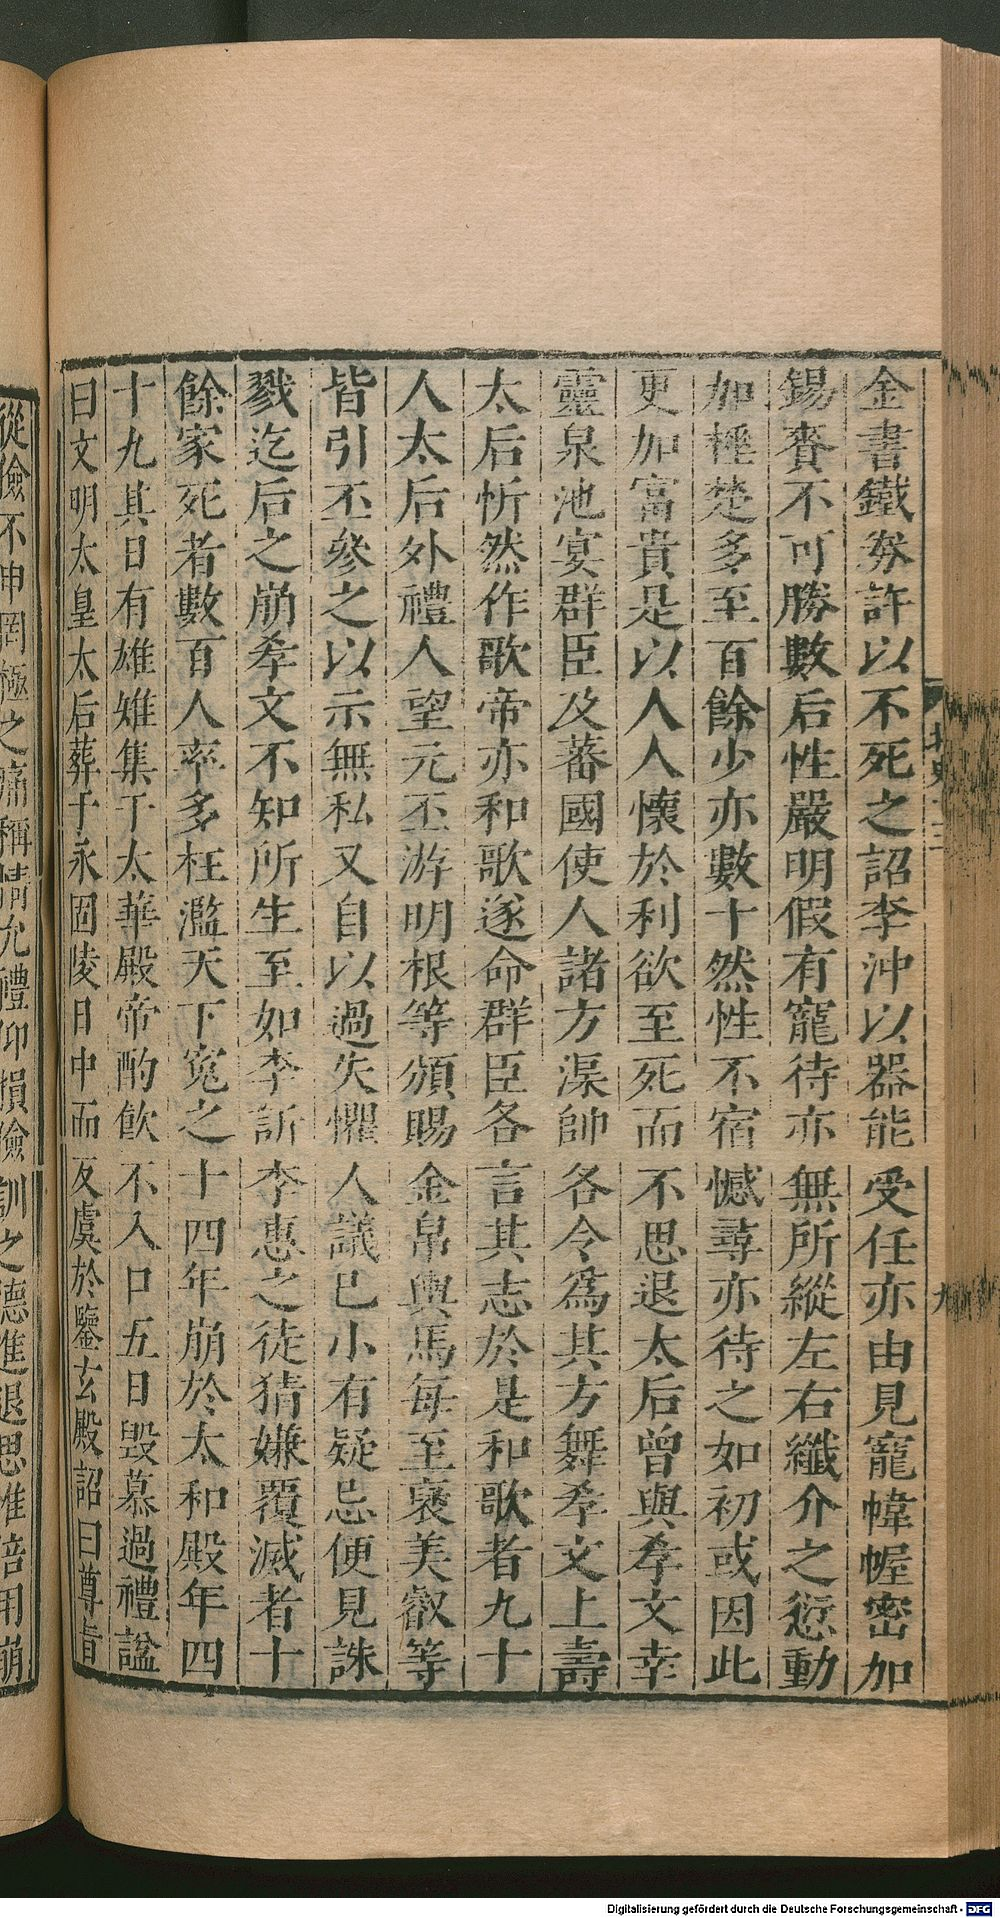 金書鐵券許以不死之詔李沖以器能受任亦由見寵幃幄密加
錫賚不可勝數后性嚴明假有寵待亦無所縱左右纖介之愆動
加棰楚多至百餘少亦數十然性不宿憾尋亦待之如初或因此
更加富貴是以人人懷於利欲至死而不思退太后曾與孝文幸
靈泉池宴群臣及蕃國使人諸方渠帥各令爲其方舞孝文上壽
太后忻然作歌帝亦和歌遂命群臣各言其志於是和歌者九十
人太后外禮人望元丕游明根等頒賜金帛輿馬每至褒美叡等
皆引丕參之以示無私又自以過失懼人議已小有疑忌便見誅
戮迄后之崩孝文不知所生至如李訢李惠之徒猜嫌覆滅者十
餘家死者數百人率多枉濫天下寃之十四年崩於太和殿年四
十九其日有雄雉集于太華殿帝酌飲不入口五日毀慕過禮謚
曰文明太皇太后葬于永固陵日中而反虞於鑒玄殿詔曰尊旨
從儉不申罔極之痛稱情允禮仰損儉訓之德進退思惟倍用崩
北史十三
九
Digitalisierung gefördert durch die Deutsche Forschungsgemeinschaft - DFG